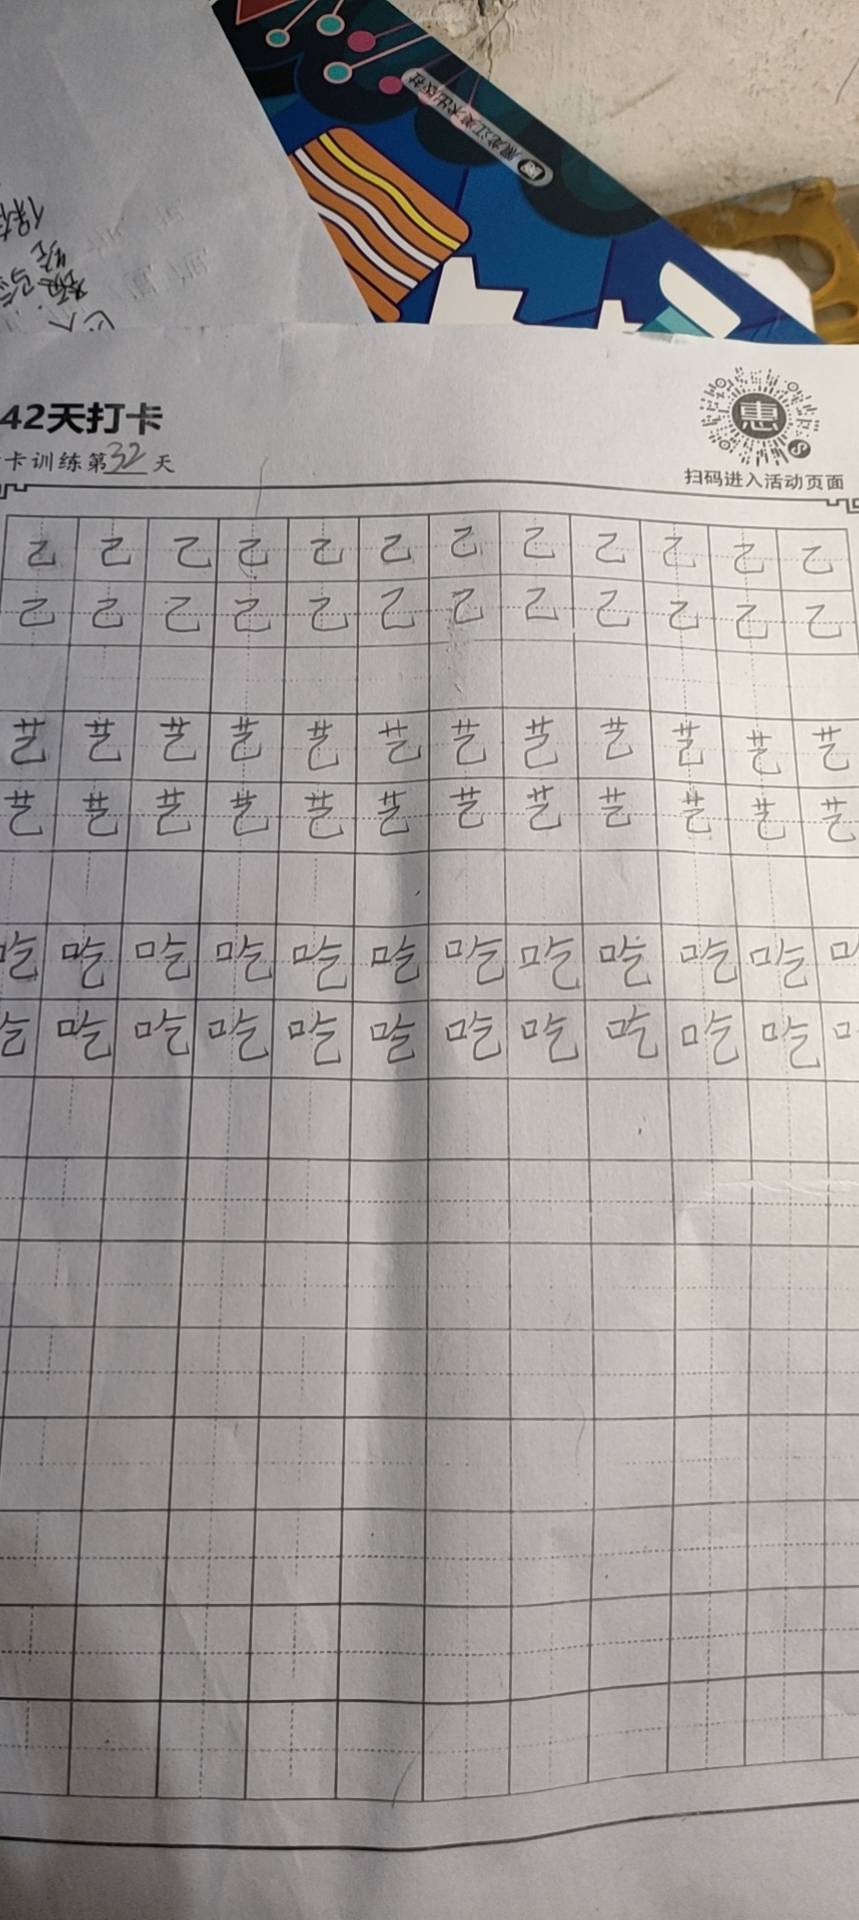 黑龙江美术出版社
42天打卡
卡训练第32天
惠
扫码进入活动页面
乙 乙 乙 乙 乙 乙 乙 乙 乙 乙 乙 乙
乙 乙 乙 乙 乙 乙 乙 乙 乙 乙 乙 乙
艺 艺 艺 艺 艺 艺 艺 艺 艺 艺 艺 艺
艺 艺 艺 艺 艺 艺 艺 艺 艺 艺 艺 艺
吃 吃 吃 吃 吃 吃 吃 吃 吃 吃 吃
吃 吃 吃 吃 吃 吃 吃 吃 吃 吃